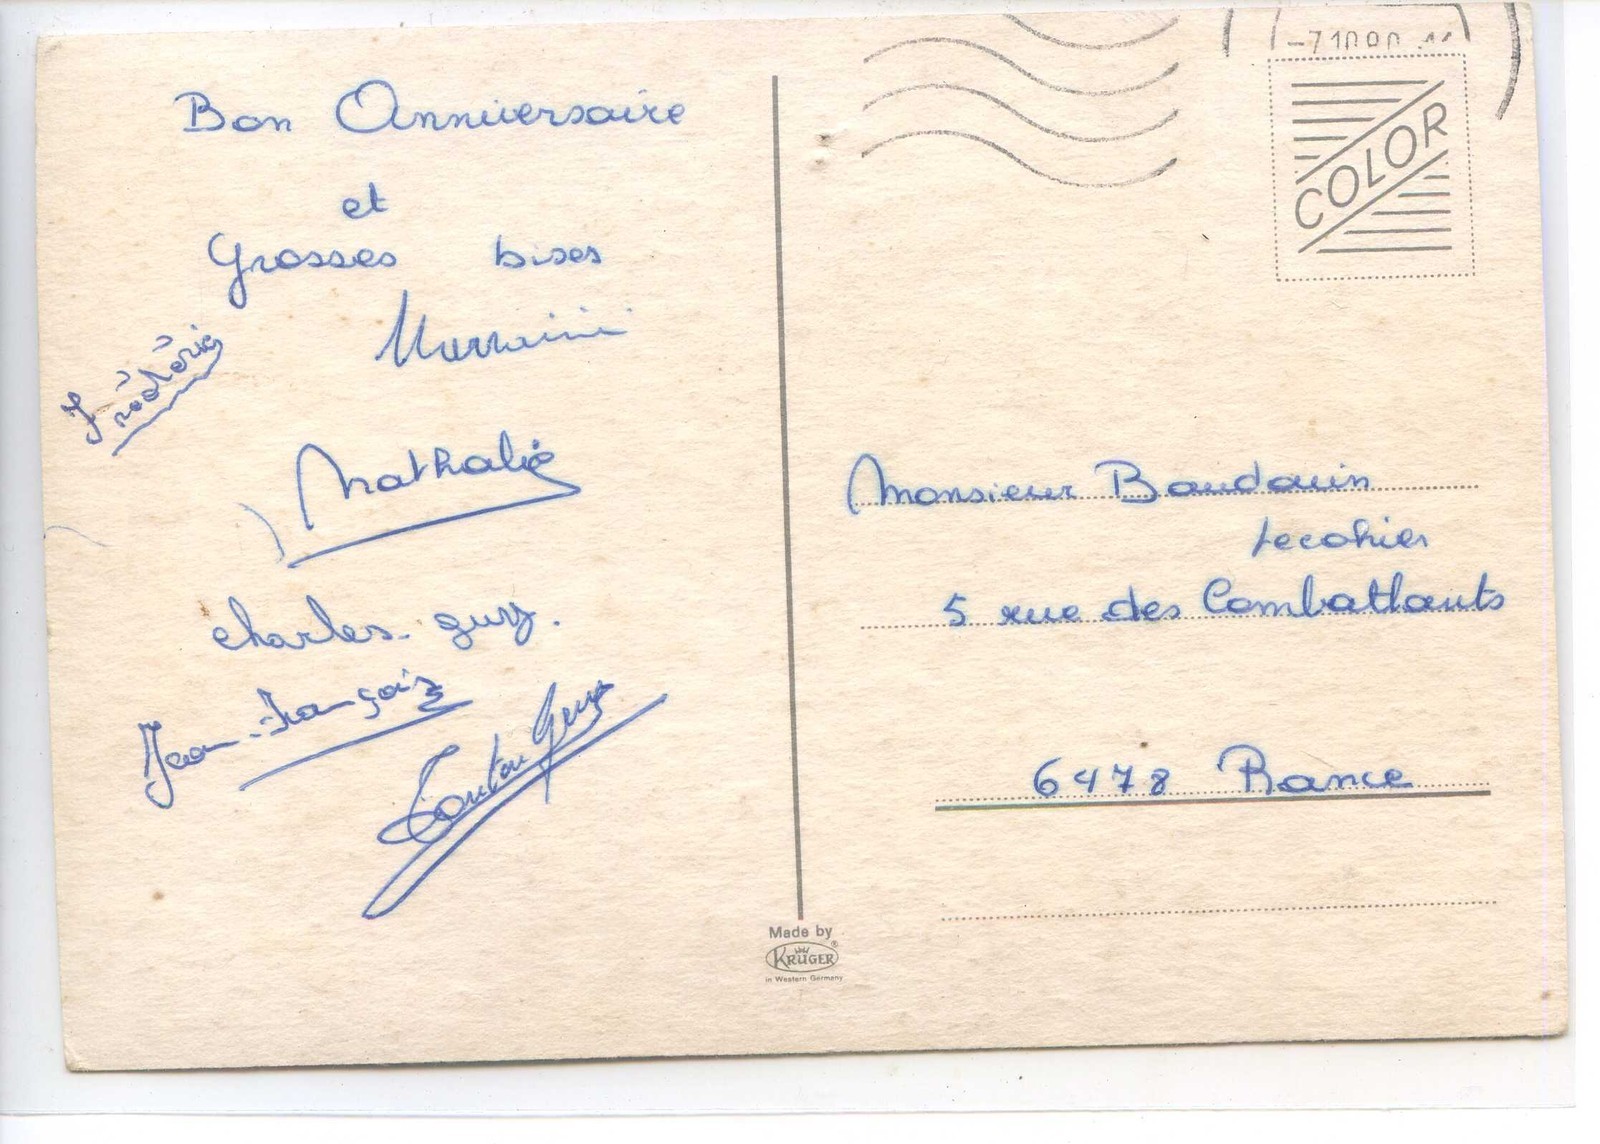 Bon Anniversaire
et
Grosses bises
Marraine
Frédéric
Nathalie
Charles-guy.
Jean-François
Tonton Guy
COLOR
Monsieur Baudouin
Lecohier
5 rue des Combattants
6478 Rance
Made by
KRÜGER ®
in Western Germany